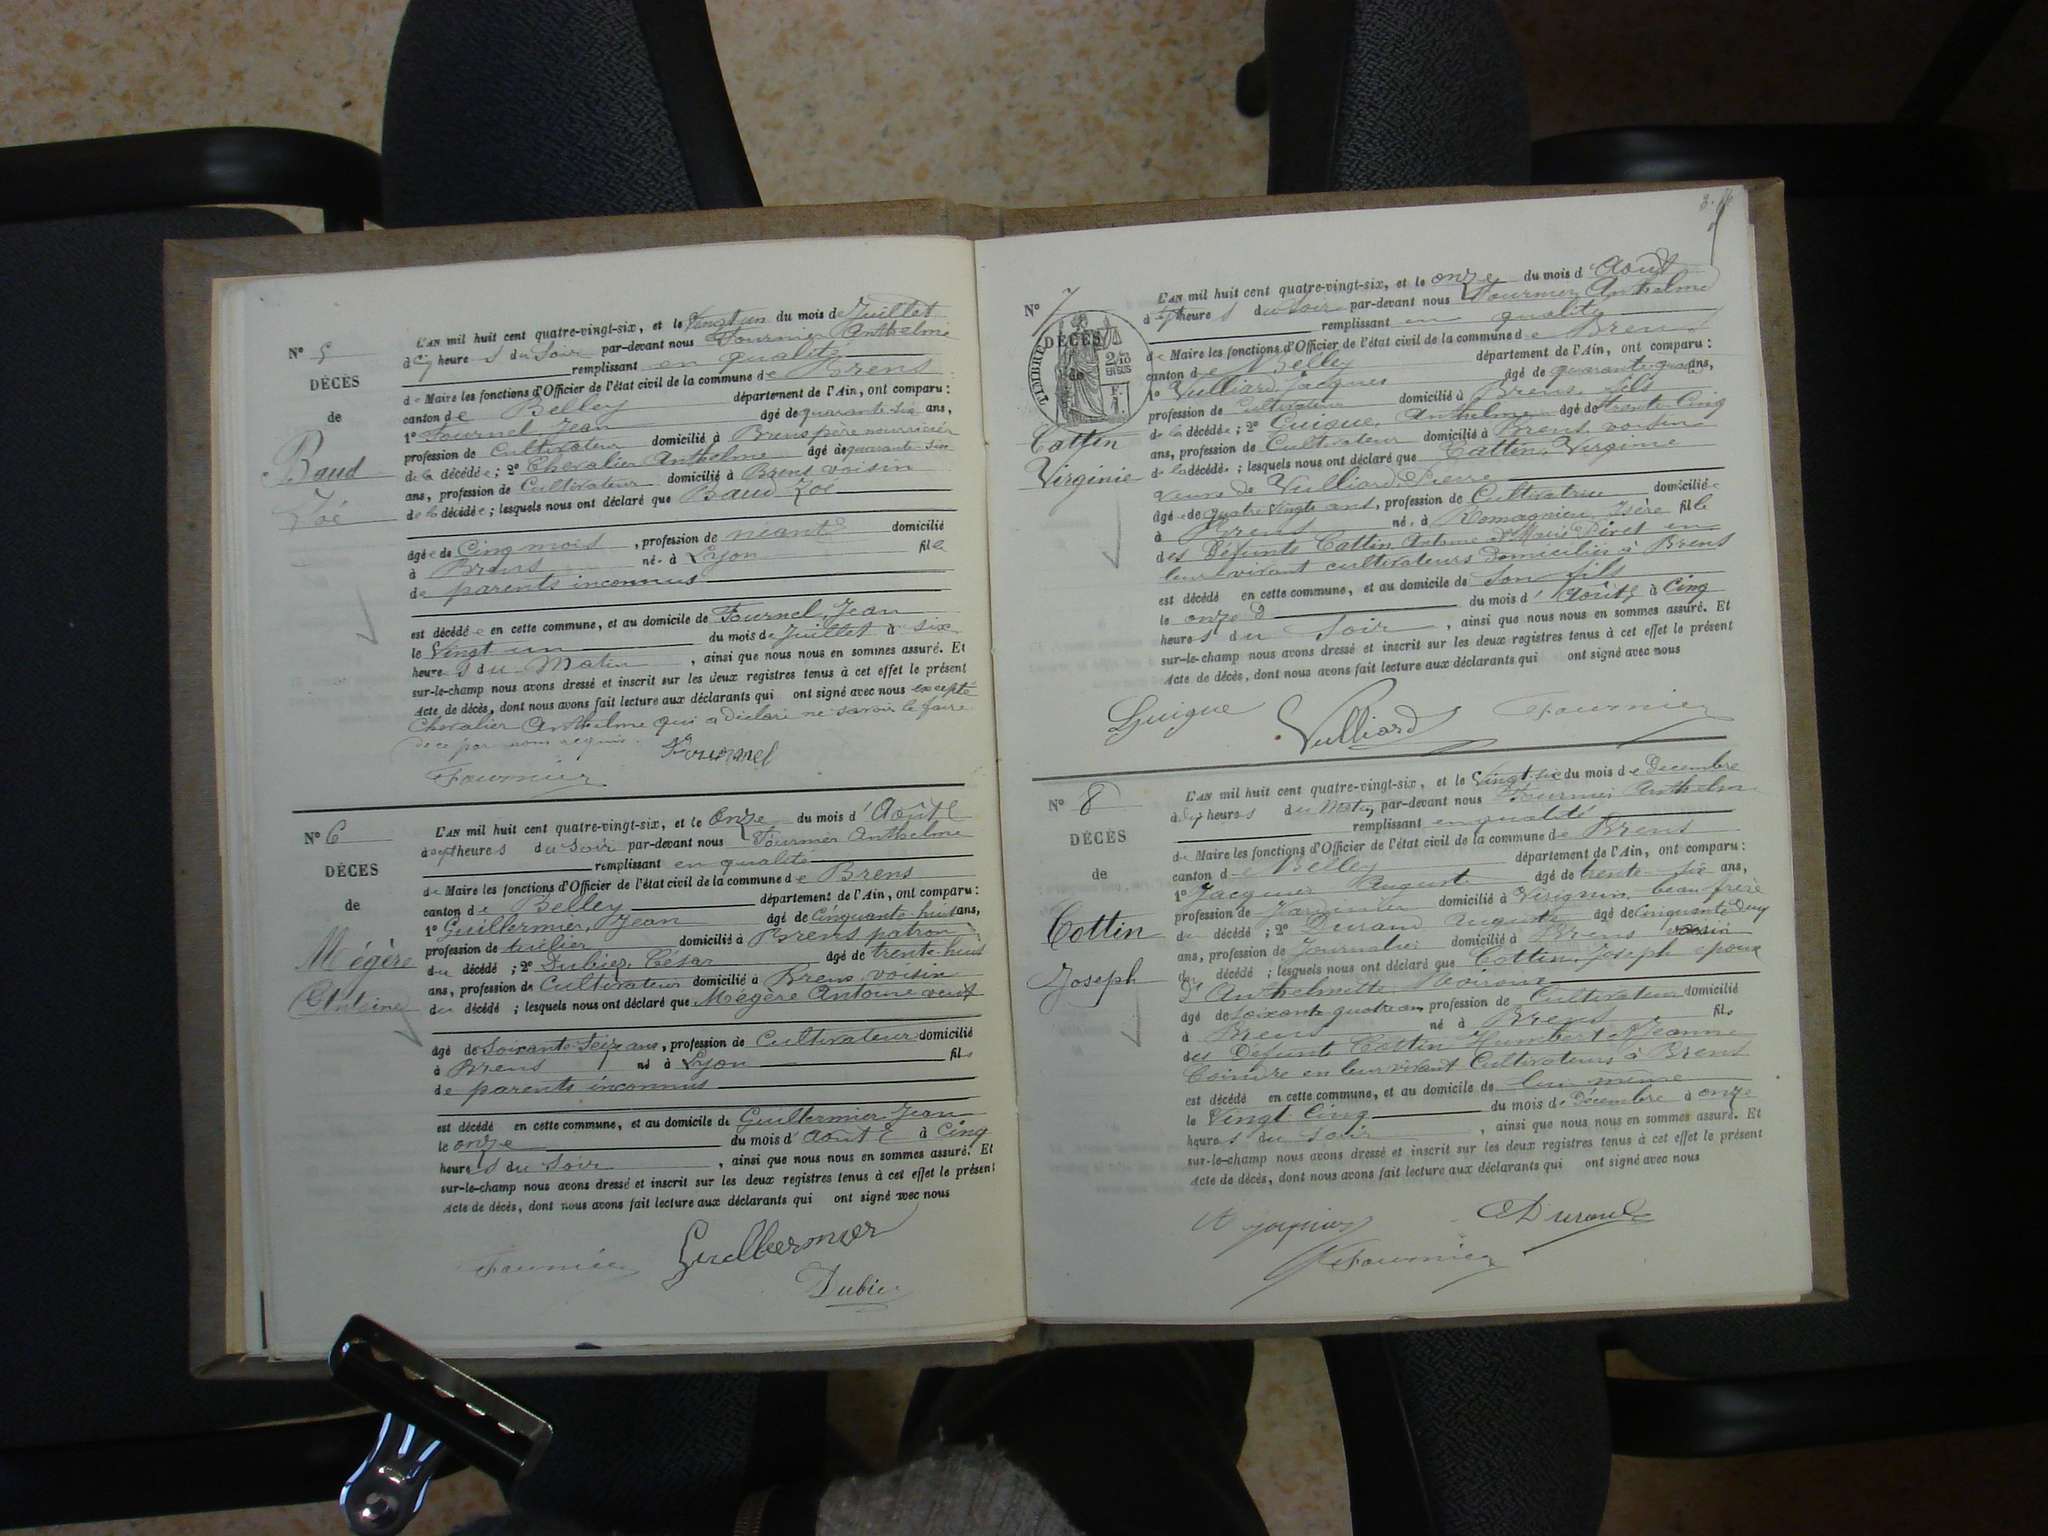 N° 5
DÉCÈS
de
Baud
Zoé
L'AN mil huit cent quatre-vingt-six, et le Vingt un du mois de Juillet
à cinq heures du Soir par-devant nous Fournier Anthelme
remplissant en qualité
de Maire les fonctions d'Officier de l'état civil de la commune de Brens
canton de Belley département de l'Ain, ont comparu :
1° Fournel Jean âgé de quarante-six ans,
profession de Cultivateur domicilié à Brens père nourricier
de la décédée ; 2° Chevalier Anthelme âgé de quarante-six
ans, profession de Cultivateur domicilié à Brens voisin
de la décédée ; lesquels nous ont déclaré que Baud Zoé
âgée de Cinq mois , profession de néant domicilié
à Brens né à Lyon fille
de parents inconnus
est décédée en cette commune, et au domicile de Fournel, Jean
le Vingt un du mois de Juillet à six
heures du Matin , ainsi que nous nous en sommes assuré. Et
sur-le-champ nous avons dressé et inscrit sur les deux registres tenus à cet effet le présent
Acte de décès, dont nous avons fait lecture aux déclarants qui ont signé avec nous excepté
Chevalier Anthelme qui a déclaré ne savoir le faire
de ce par nous requis. Fournel
Fournier
N° 6
DÉCÈS
de
Mégère
Antoine
L'AN mil huit cent quatre-vingt-six, et le onze du mois d'Août
à sept heures du Soir par-devant nous Fournier Anthelme
remplissant en qualité
de Maire les fonctions d'Officier de l'état civil de la commune de Brens
canton de Belley département de l'Ain, ont comparu :
1° Guillermier, Jean âgé de Cinquante-huit ans,
profession de tuilier domicilié à Brens patron
du décédé ; 2° Dubiez, César âgé de trente-huit
ans, profession de Cultivateur domicilié à Brens voisin
du décédé ; lesquels nous ont déclaré que Mégère Antoine veuf
âgé de Soixante Seize ans, profession de Cultivateur domicilié
à Brens né à Lyon fils
de parents inconnus
est décédé en cette commune, et au domicile de Guillermier Jean
le onze du mois d'août à Cinq
heures du Soir , ainsi que nous nous en sommes assuré. Et
sur-le-champ nous avons dressé et inscrit sur les deux registres tenus à cet effet le présent
Acte de décès, dont nous avons fait lecture aux déclarants qui ont signé avec nous
Fournier Guillermier
Dubiez
N° 7
DÉCÈS
de
TIMBRE
2/10 EN SUS
F.
1.
Cattin
Virginie
L'AN mil huit cent quatre-vingt-six, et le onze du mois d'Août
à sept heures du Soir par-devant nous Fournier Anthelme
remplissant en qualité
de Maire les fonctions d'Officier de l'état civil de la commune de Brens
canton de Belley département de l'Ain, ont comparu :
1° Vulliard, Jacques âgé de quarante-quatre ans,
profession de Cultivateur domicilié à Brens, fils
de la décédée ; 2° Guigue, Anthelme âgé de trente-Cinq
ans, profession de Cultivateur domicilié à Brens voisin
de la décédée ; lesquels nous ont déclaré que Cattin, Virginie
veuve de Vulliard, Pierre
âgée de quatre vingts ans, profession de Cultivatrice domiciliée
à Brens née à Romagnieu, Isère fille
des Défunts Cattin, Antoine et Marie Péret en
leur vivant cultivateurs domiciliés à Brens
est décédé en cette commune, et au domicile de Son fils
le onze du mois d'Août à Cinq
heures du Soir , ainsi que nous nous en sommes assuré. Et
sur-le-champ nous avons dressé et inscrit sur les deux registres tenus à cet effet le présent
Acte de décès, dont nous avons fait lecture aux déclarants qui ont signé avec nous
Guigue Vulliard Fournier
N° 8
DÉCÈS
de
Cottin
Joseph
L'AN mil huit cent quatre-vingt-six, et le Vingt-six du mois de Decembre
à dix heures du Matin par-devant nous Fournier Anthelme
remplissant en qualité
de Maire les fonctions d'Officier de l'état civil de la commune de Brens
canton de Belley département de l'Ain, ont comparu :
1° Jacquier Auguste âgé de trente-six ans,
profession de Jardinier domicilié à Virignin beau frère
du décédé ; 2° Durand Auguste âgé de Cinquante deux
ans, profession de Journalier domicilié à Brens voisin
du décédé ; lesquels nous ont déclaré que Cottin, Joseph époux
d'Anthelmette
âgé de Soixante quatre ans profession de Cultivateur domicilié
à Brens né à Brens fils
des Défunts Cottin Humbert et Jeanne
Coindre en leur vivant Cultivateurs à Brens
est décédé en cette commune, et au domicile de lui même
le Vingt Cinq du mois de Décembre à onze
heures du Soir , ainsi que nous nous en sommes assuré. Et
sur-le-champ nous avons dressé et inscrit sur les deux registres tenus à cet effet le présent
Acte de décès, dont nous avons fait lecture aux déclarants qui ont signé avec nous
A Jacquier Durand
Fournier